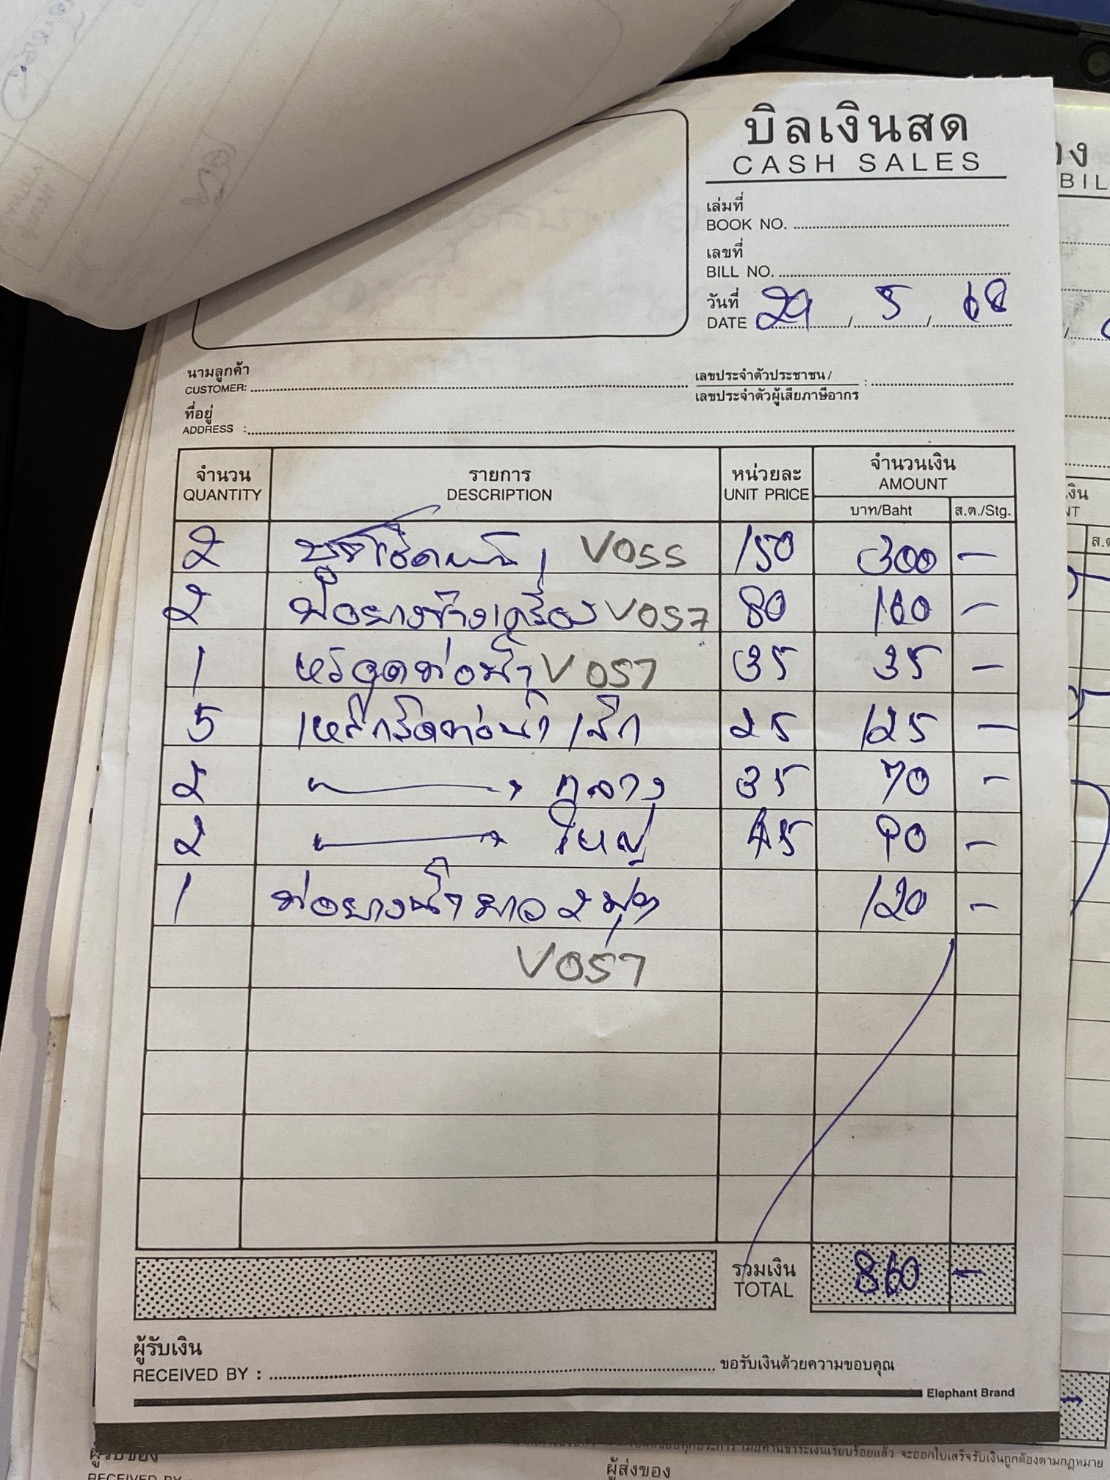 บิลเงินสด
CASH SALES
เล่มที่
BOOK NO.
เลขที่
BILL NO.
วันที่
DATE 29 / 5 / 68
นามลูกค้า
CUSTOMER:
เลขประจำตัวประชาชน/
เลขประจำตัวผู้เสียภาษีอากร :
ที่อยู่
ADDRESS :
จำนวน รายการ หน่วยละ จำนวนเงิน
QUANTITY DESCRIPTION UNIT PRICE AMOUNT
บาท/Baht ส.ต./Stg.
2 V055 150 300 -
2 V057 80 160 -
1 หรีดูดท่อน้ำ V057 35 35 -
5 เหล็กรัดท่อน้ำ เล็ก 25 125 -
2 กลาง 35 70 -
2 ใหญ่ 45 90 -
1 ท่อยางน้ำ ยาว 2 ฟุต 120 -
V057
รวมเงิน
TOTAL 860 -
ผู้รับเงิน
RECEIVED BY : ขอรับเงินด้วยความขอบคุณ
Elephant Brand
ผู้รับของ
RECEIVED BY
ผู้ส่งของ